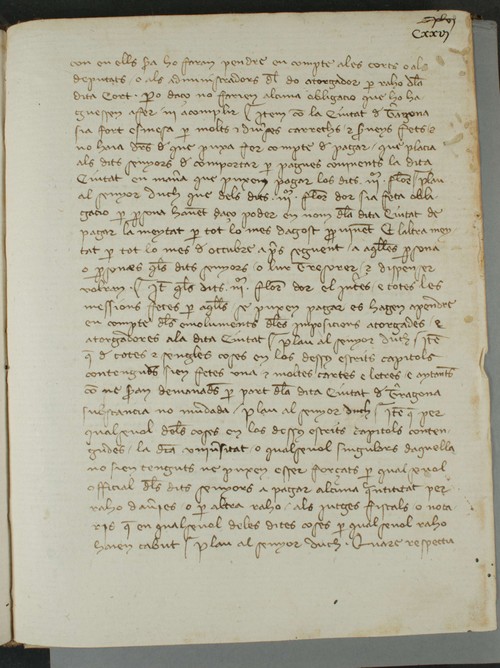 CXXVI
con en ells sia ho faran pendre en compte a les corts o als
deputats o als administradors del do atorgador per raho dela
dita Cort. Pero daço no farien alcuna obligacio que ho ha
guessen a fer ni a complir. Item com la Ciutat de Tarragona
sia fort estmesa per molts e diverses carrechs e fets e
no haia de que puxa fer compte de pagar que placia
als dits senyors de comportar per pagues convinents la dita
Ciutat en manera que puxen pagar los dits .IIIIm. florins. Plau
al senyor duch que dels dits .IIIIm. florins dor sia feta obli
gacio per persona havent daço poder en nom dela dita Ciutat de
pagar la meytat per tot lo mes dagost prop vinent E laltra mey
tat per tot lo mes doctubre apres seguent a aquelles persona
o persones quels dits senyors o lur Tresorer e dispenser
volran. Item quels dits .IIIIm. florins dor el interes e totes les
messions fetes per aquells se puxen pagar es hagen a pendre
en compte dels emoluments deles imposicions atorgades e
atorgadores ala dita Ciutat. Plau al senyor duch. Item
que de totes e sengles coses en los dessus escrits capitols
contengudes sien fetes una e moltes cartes e letres e aytantes
com ne seran demanades per part dela dita Ciutat de Tarragona
substancia no mudada. Plau al senyor duch. Item que per
qualsevol deles coses en los dessus escrits capitols conten
gudes la dita universitat o qualsevol singulars daquella
no sien tenguts ne puxen esser forçats per qualsevol
official dels dits senyors a pagar alcuna quantitat per
raho daveries o per altra raho als jutges fiscals o nota
ris que en qualsevol deles dites coses per qualsevol raho
haien cabut. Plau al senyor duch. Quare respectu